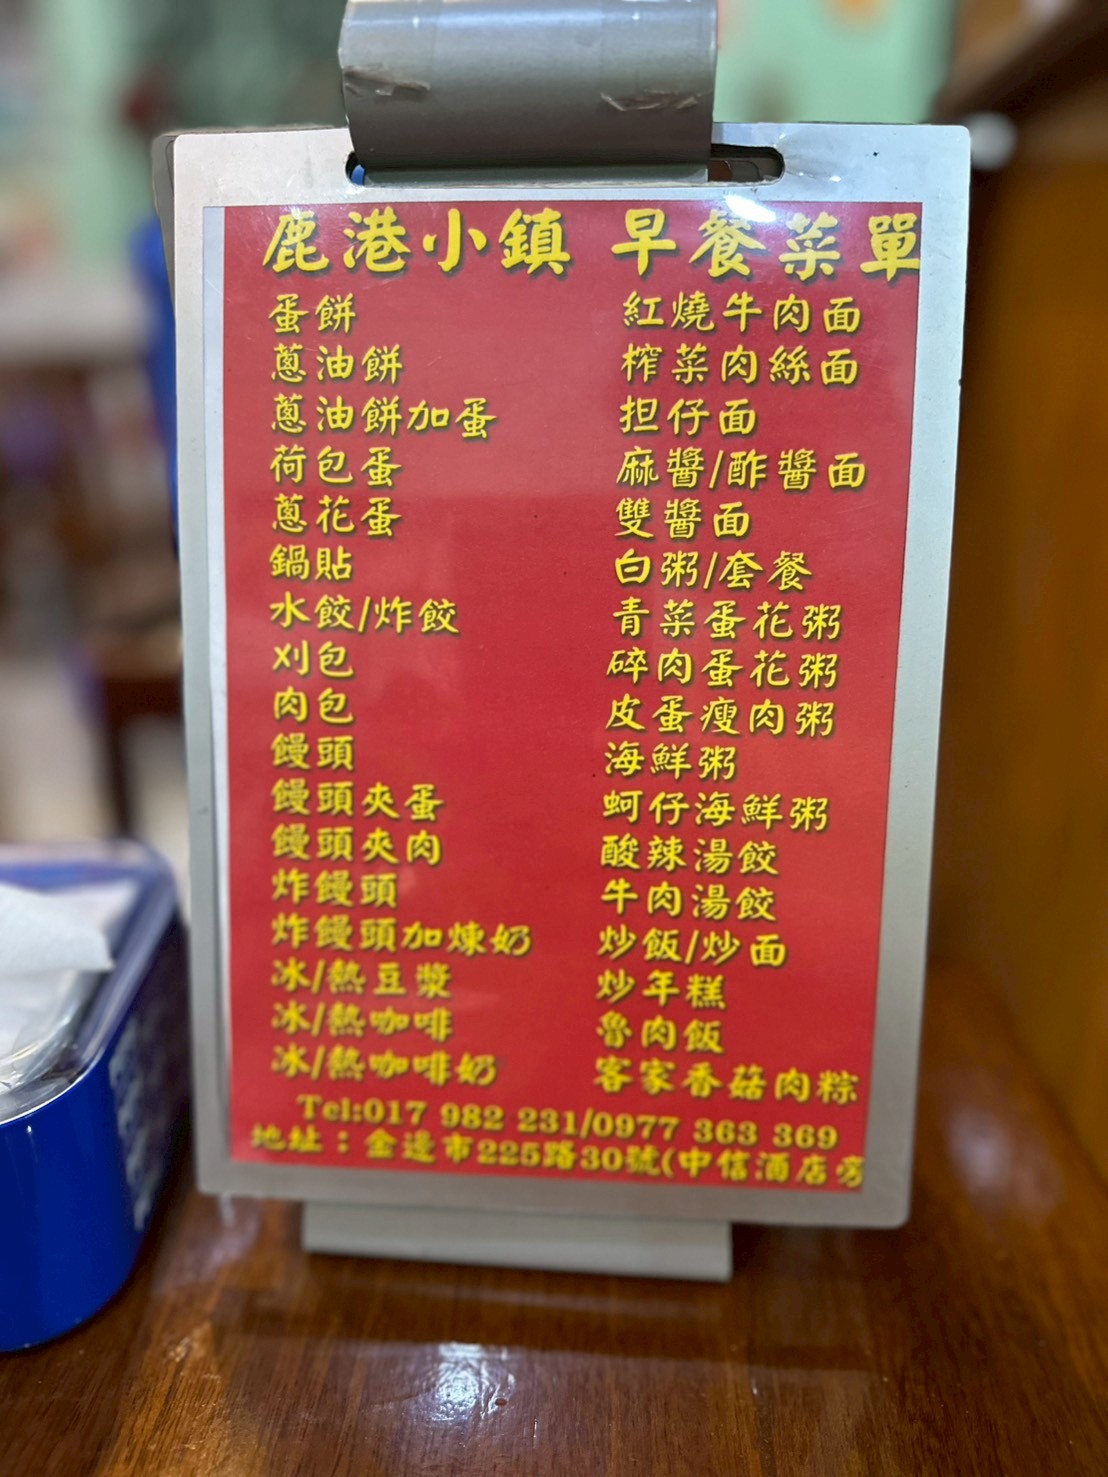 鹿港小鎮 早餐菜單
蛋餅
蔥油餅
蔥油餅加蛋
荷包蛋
蔥花蛋
鍋貼
水餃/炸餃
刈包
肉包
饅頭
饅頭夾蛋
饅頭夾肉
炸饅頭
炸饅頭加煉奶
冰/熱豆漿
冰/熱咖啡
冰/熱咖啡奶
紅燒牛肉面
榨菜肉絲面
担仔面
麻醬/酢醬面
雙醬面
白粥/套餐
青菜蛋花粥
碎肉蛋花粥
皮蛋瘦肉粥
海鮮粥
蚵仔海鮮粥
酸辣湯餃
牛肉湯餃
炒飯/炒面
炒年糕
魯肉飯
客家香菇肉粽
Tel:017 982 231/0977 363 369
地址：金邊市225路30號(中信酒店旁